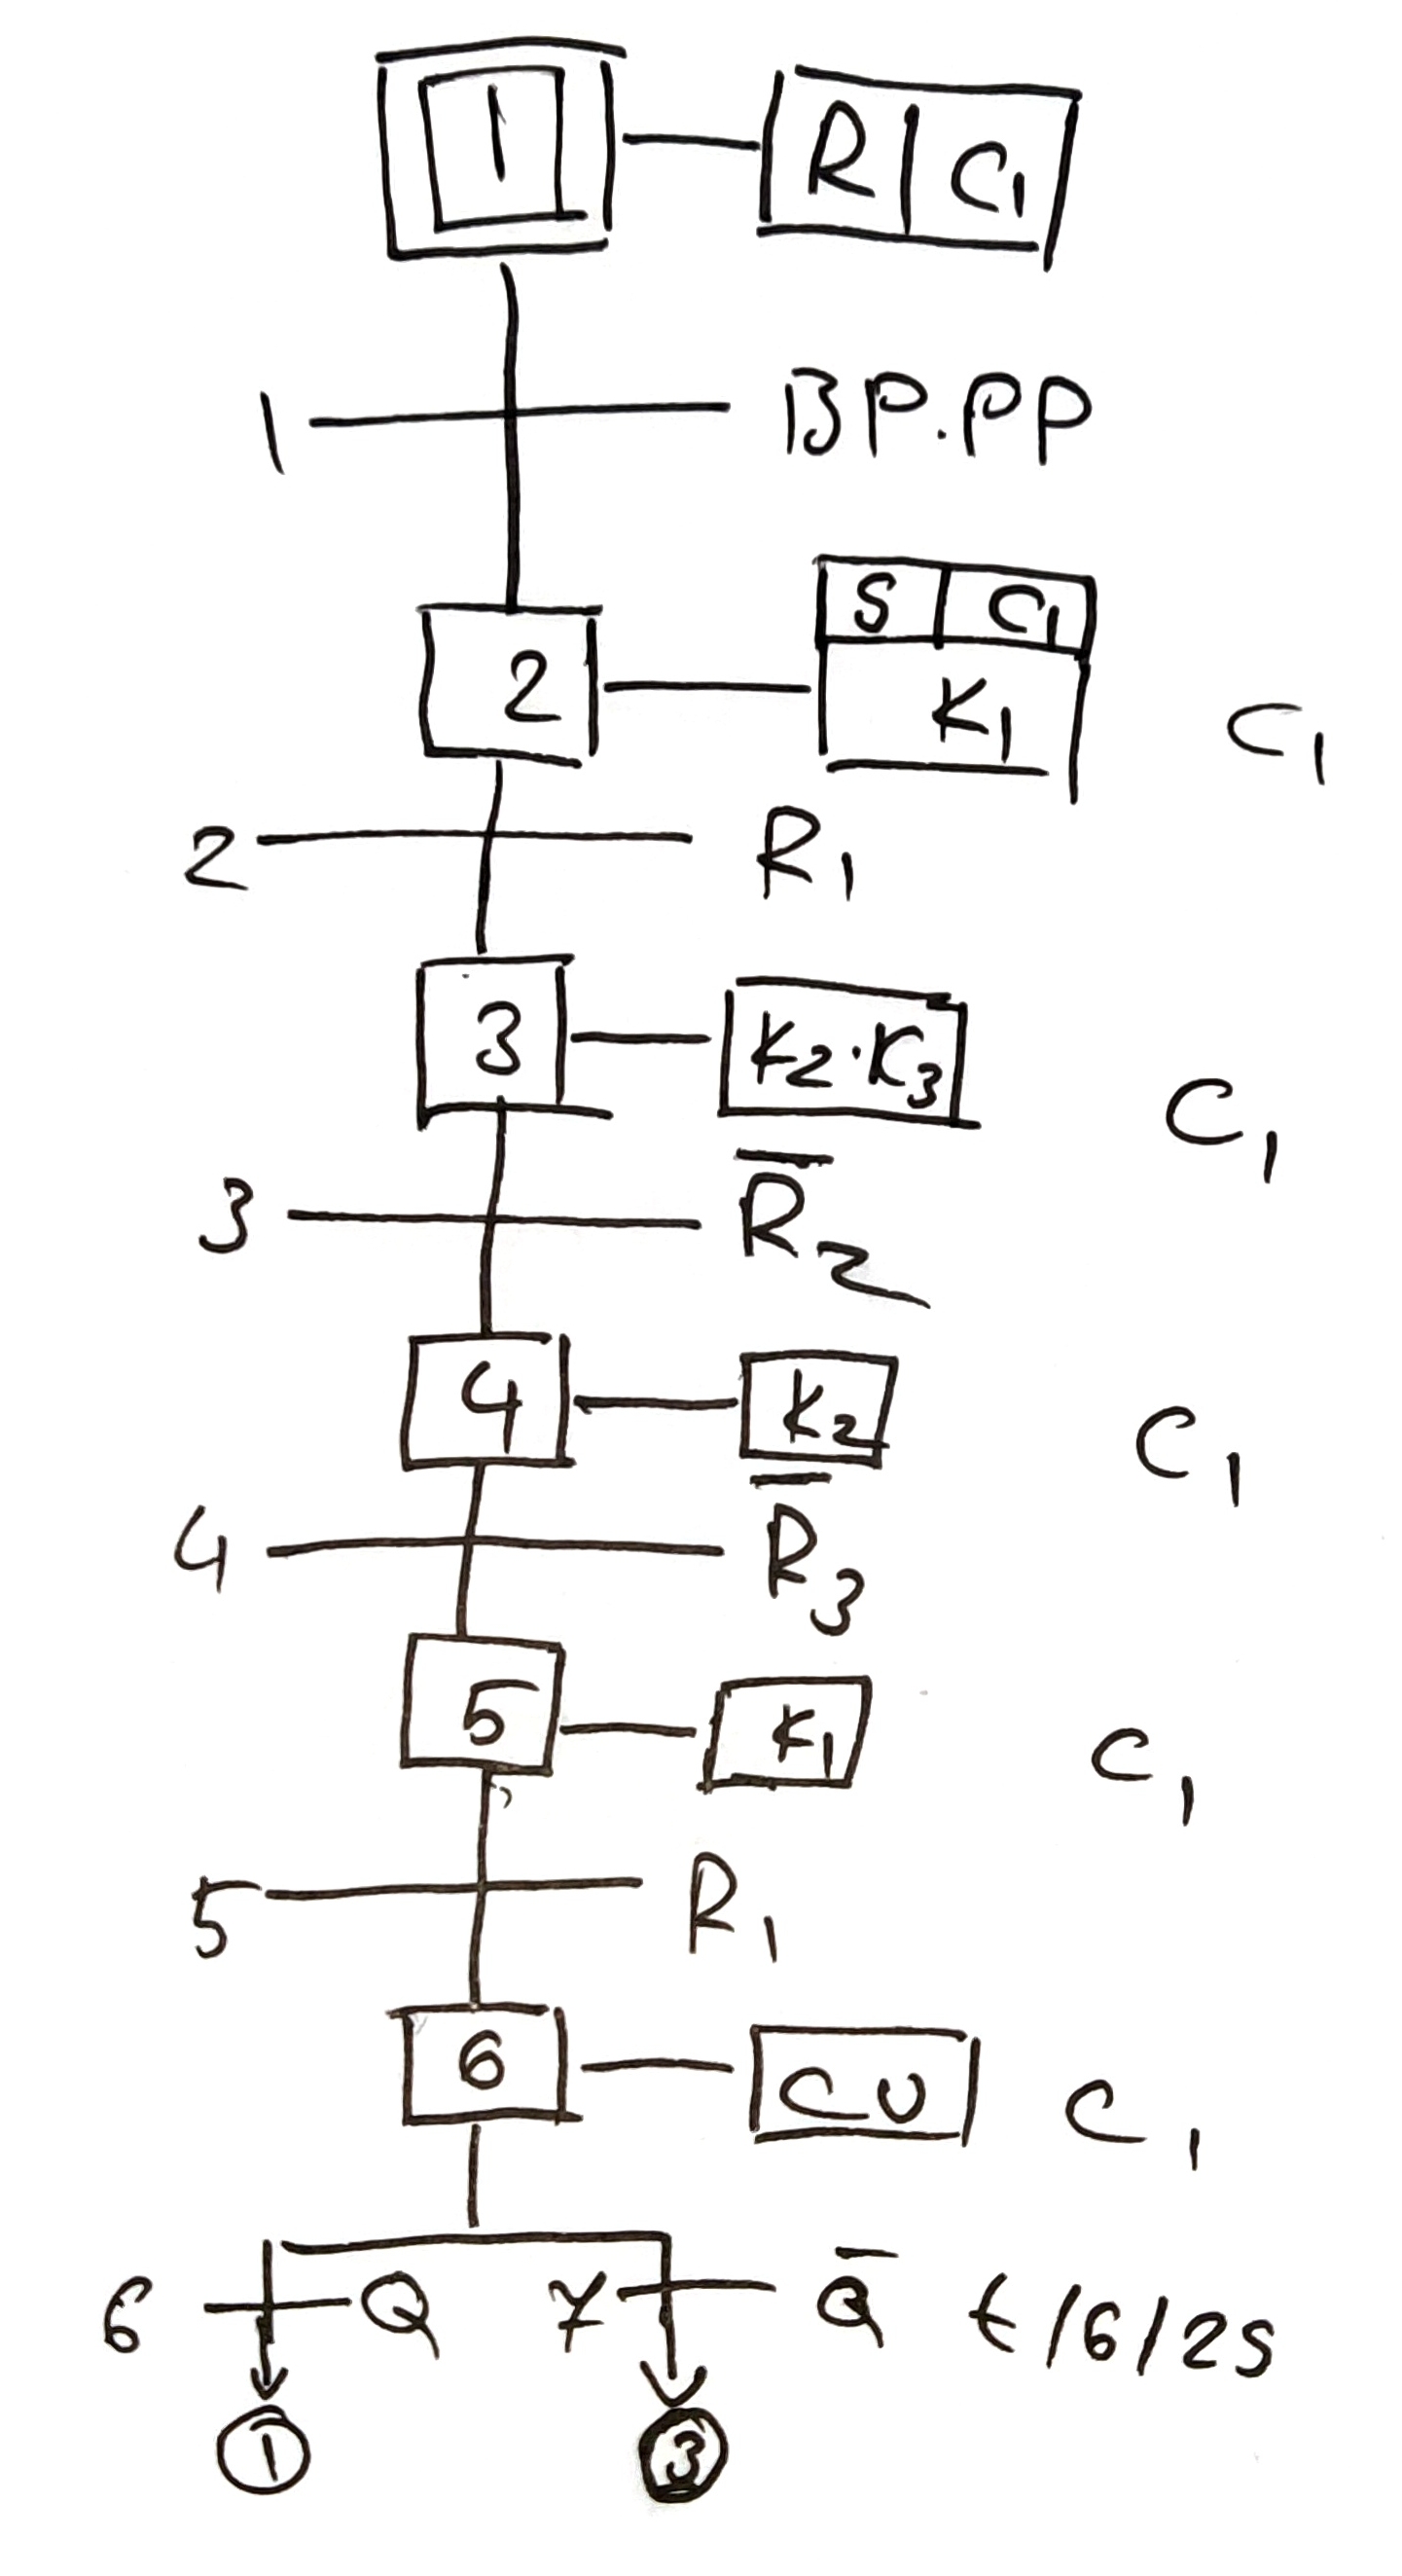 1 R C1
1 BP.PP
S C1
2 K1 C1
2 R1
3 K2·K3 C1
3 R̅2
4 K2 C1
4 R̅3
5 K1 C1
5 R1
6 CU C1
6 Q 7 Q̅ t/6/2s
1 3